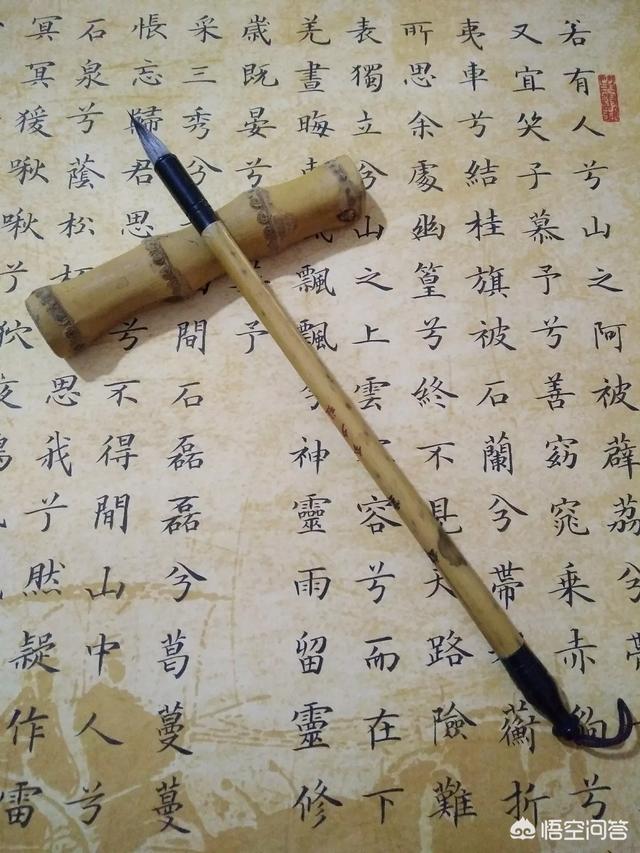 若有人兮山之阿被薜荔帶
又宜笑子慕予兮善窈窕乘赤豹兮
夷車兮結桂旗被石蘭兮帶蘅折
所思余處幽篁兮終不見天路險難
表獨立兮山之上雲容兮而在下
羌晝晦飄飄兮神靈雨留靈修
歲既晏兮予
采三秀兮間石磊磊兮葛蔓蔓
悵忘歸君思兮不得間山中人兮
石泉兮蔭松柏思我兮然疑作雷
冥冥猨啾啾兮狖夜鳴
悟空问答